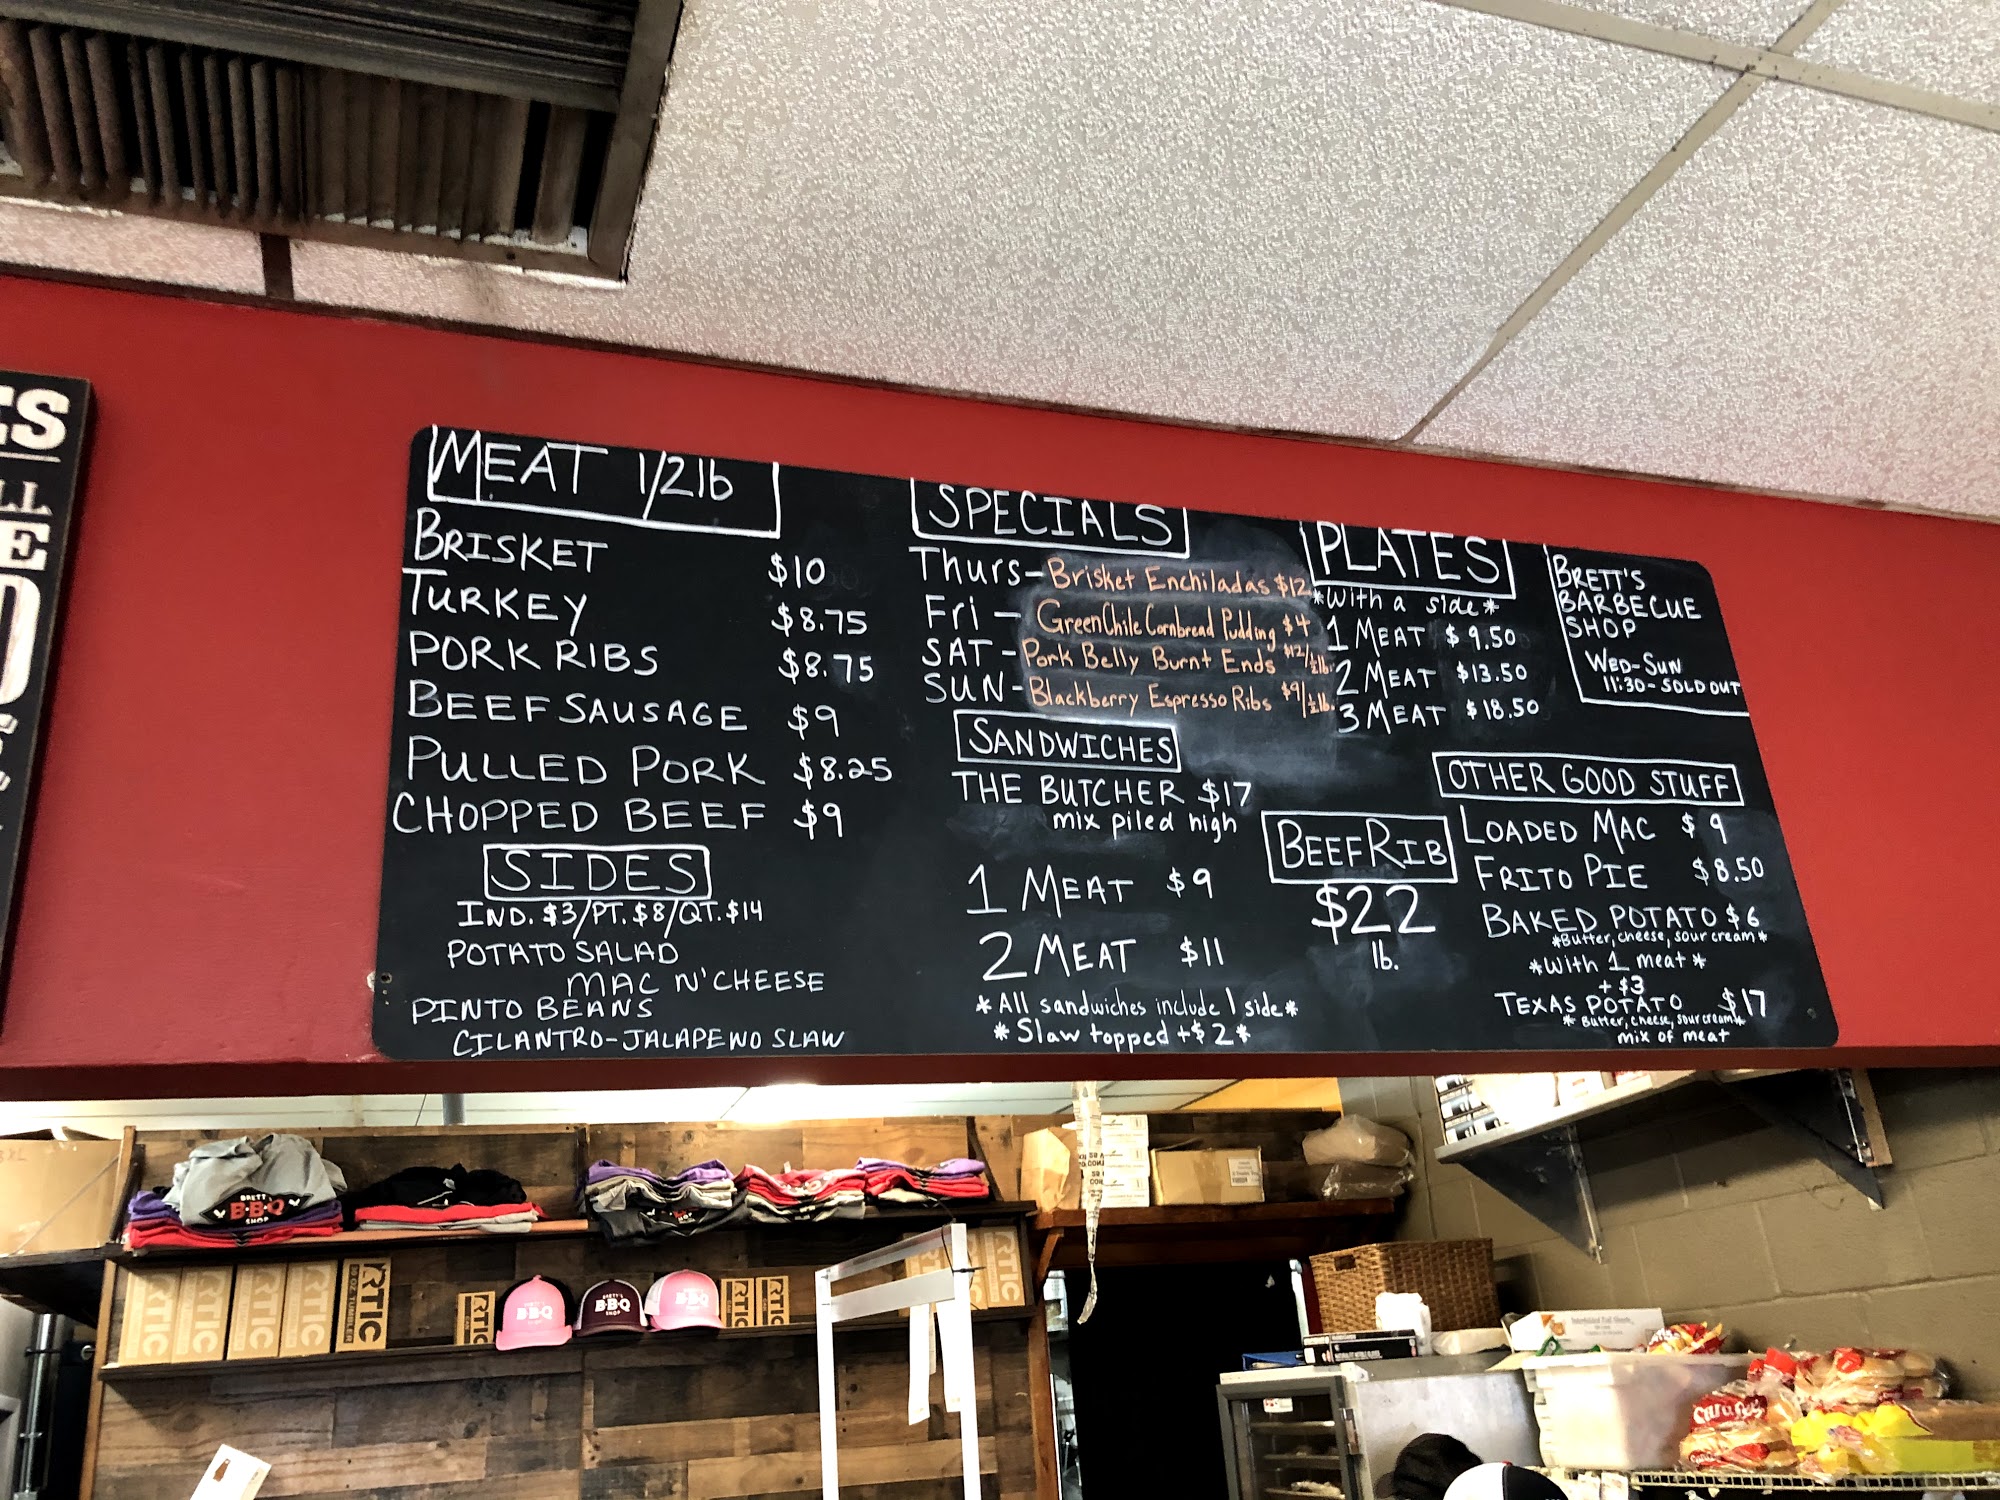 ES
LL
E
MEAT 1/2 lb
BRISKET $10
TURKEY $8.75
PORK RIBS $8.75
BEEF SAUSAGE $9
PULLED PORK $8.25
CHOPPED BEEF $9
SIDES
IND. $3/PT. $8/QT. $14
POTATO SALAD
MAC N' CHEESE
PINTO BEANS
CILANTRO-JALAPENO SLAW
SPECIALS
Thurs - Brisket Enchiladas $12
Fri - Green Chile Cornbread Pudding $4
SAT - Pork Belly Burnt Ends $12/½lb.
SUN - Blackberry Espresso Ribs $9/½lb.
SANDWICHES
THE BUTCHER $17
mix piled high
1 MEAT $9
2 MEAT $11
*All sandwiches include 1 side*
*Slaw topped +$2*
PLATES
*with a side*
1 MEAT $9.50
2 MEAT $13.50
3 MEAT $18.50
BEEF RIB
$22
lb.
BRETT'S
BARBECUE
SHOP
WED-SUN
11:30-SOLD OUT
OTHER GOOD STUFF
LOADED MAC $9
FRITO PIE $8.50
BAKED POTATO $6
*Butter, cheese, sour cream*
*With 1 meat*
+$3
TEXAS POTATO $17
*Butter, cheese, sour cream*
mix of meat
BRETT'S
B·B·Q
SHOP
RTIC
RTIC
RTIC
RTIC
RTIC
RTIC
BBQ
BRETT'S
B·B·Q
SHOP
BBQ
RTIC
RTIC
RTIC